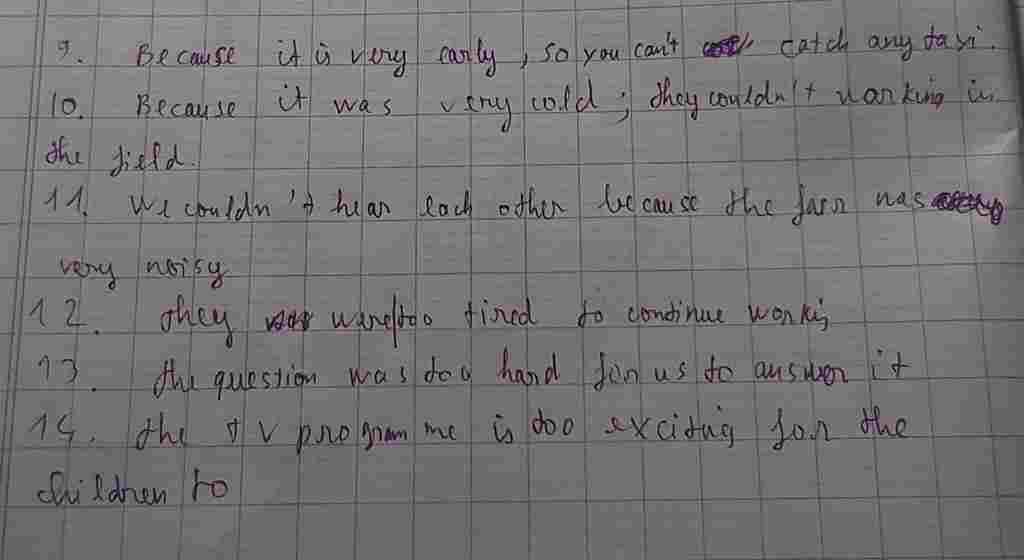 9. Because it is very early, so you can't catch any taxi.
10. Because it was very cold; they couldn't warking in
the field.
11. We couldn't hear each other because the farr was
very noisy
12. they were too tired to continue workig
13. the question was too hard for us to answer it
14. the TV programme is too excitng for the
children to